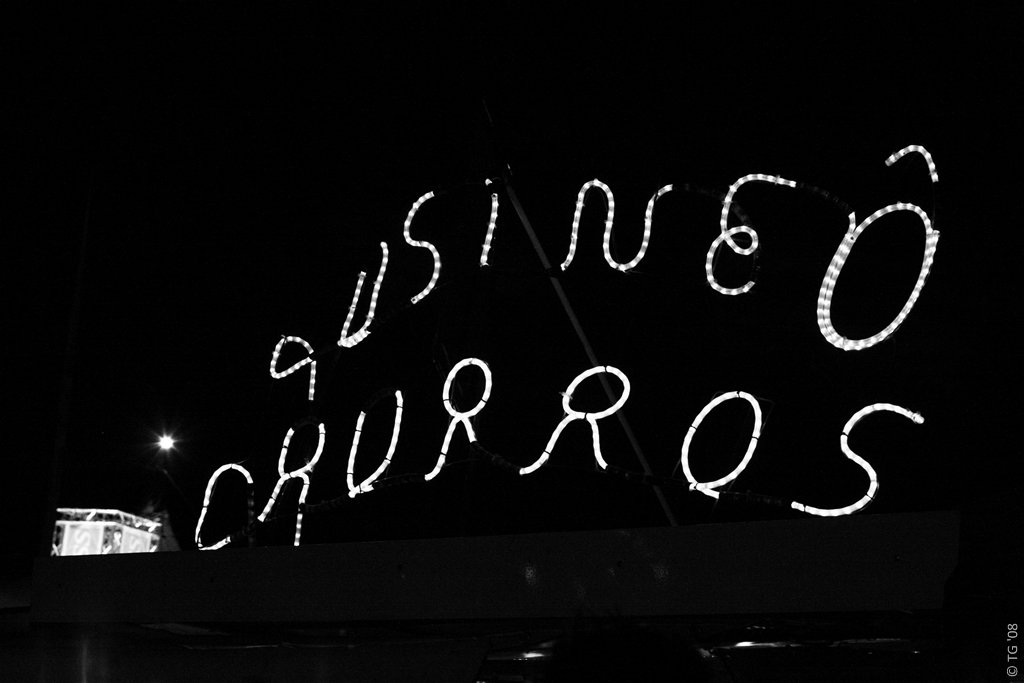 QUSINEÓ
CHURROS
© TG '08